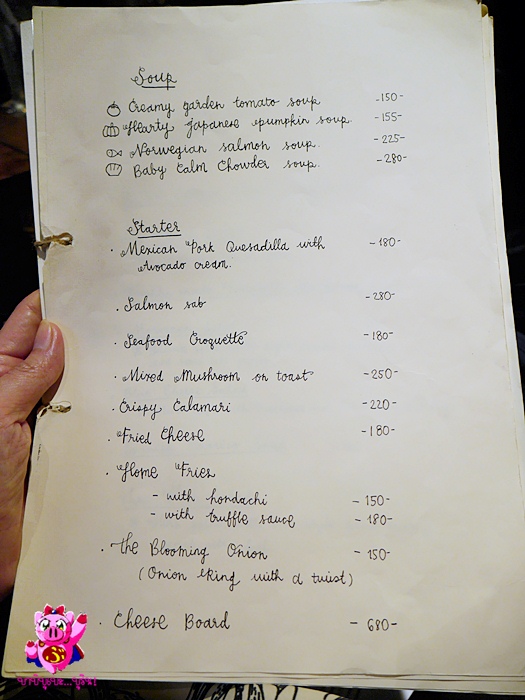 Soup
Creamy garden tomato soup -150-
Hearty Japanese pumpkin soup. -155-
Norwegian salmon soup. -225-
Baby Calm Chowder soup. -280-
Starter
. Mexican Pork Quesadilla with -180-
Avocado cream.
. Salmon sab -280-
. Seafood Croquette -180-
. Mixed Mushroom on toast -250-
. Crispy Calamari -220-
. Fried Cheese -180-
. Home Fries
- with hondachi -150-
- with truffle sauce -180-
. The Blooming Onion -150-
(Onion Ring with a twist)
. Cheese Board - 680-